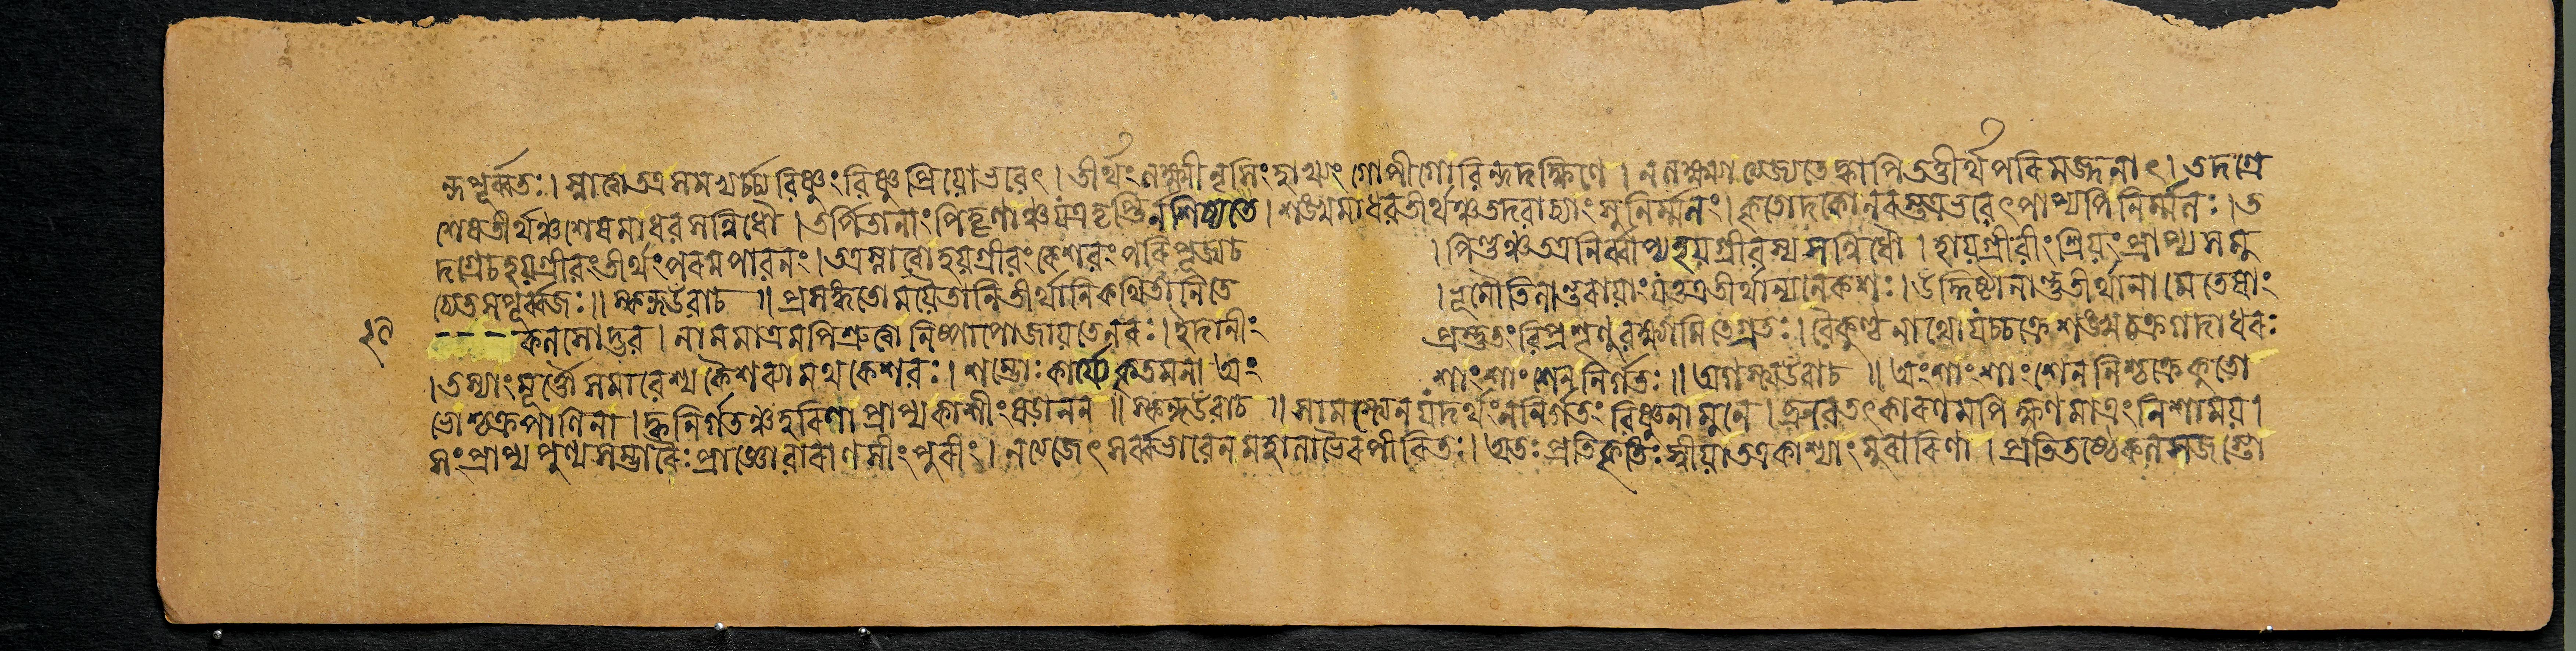 ন্দপূর্ব্বতঃ। স্নাত্বা তত্র সমভ্যর্চ্চ্য বিষ্ণুং বিষ্ণুপ্রিয়ো ভবেৎ। তীর্থং লক্ষ্মীনৃসিংহাখ্যং গোপীগোবিন্দদক্ষিণে। ন লক্ষ্ম্যা ত্যজ্যতে ক্বাপি তত্তীর্থপরিমজ্জনাৎ। তদগ্রে
শেষতীর্থঞ্চ শেষমাধবসন্নিধৌ। তর্পিতানাং পিতৄণাঞ্চ যত্র তৃপ্তির্ন শিষ্যতে। শঙ্খমাধবতীর্থঞ্চ তদবাচ্যাং সুনির্ম্মলং। কৃতোদকো নরস্তত্র ভবেৎ পাপ্যপি নির্ম্মলঃ। ত
দগ্রে চ হয়গ্রীবং তীর্থং পরমপাবনং। তত্র স্নাত্বা হয়গ্রীবং কেশবং পরিপূজ্য চ । পিণ্ডঞ্চ তত্র নির্ব্বাপ্য হয়গ্রীবস্য সন্নিধৌ। হায়গ্রীবীং শ্রিয়ং প্রাপ্য স মু
চ্যেত সপূর্ব্বজঃ॥ স্কন্দ উবাচ॥ প্রসঙ্গতো ময়ৈতানি তীর্থানি কথিতানি তে । ভূমৌ তিলান্তরায়াং যত্তত্র তীর্থান্যনেকশঃ। উদ্দিষ্টানান্তু তীর্থানামেতেষাং
- - - কলসোদ্ভব। নামমাত্রমপি শ্রুত্বা নিষ্পাপো জায়তে নরঃ। ইদানীং প্রস্তুতং বিপ্র শৃণু বক্ষ্যামি তেগ্রতঃ। বৈকুণ্ঠনাথো যচ্চক্রে শঙ্খচক্রগদাধরঃ
। তস্যাং মূর্ত্তৌ সমাবেশ্য কৈশব্যামথ কেশবঃ। শম্ভোঃ কার্য্যে কৃতমনা অংশাংশাংশেন নির্গতঃ॥ অগস্ত্য উবাচ॥ অংশাংশাংশেন নিশ্চক্রে কুতো
ভোশ্চক্রপাণিনা। ক্ব নির্গতঞ্চ হরিণা প্রাপ্য কাশীং ষড়ানন॥ স্কন্দ উবাচ॥ সামস্ত্যেন যদর্থং ন নির্গতং বিষ্ণুনা মুনে। ব্রুবে তৎকারণমপি ক্ষণমাত্রং নিশাময়।
সংপ্রাপ্য পুণ্যসম্ভারৈঃ প্রাজ্ঞো বারাণসীং পুরীং। ন ত্যজেৎ সর্ব্বভাবেন মহালাভৈরপীরিতঃ। অতঃ প্রতিকৃতিঃ স্বীয়া তত্র কাশ্যাং মুরারিণা। প্রতিতষ্ঠে কলসজ স্তো